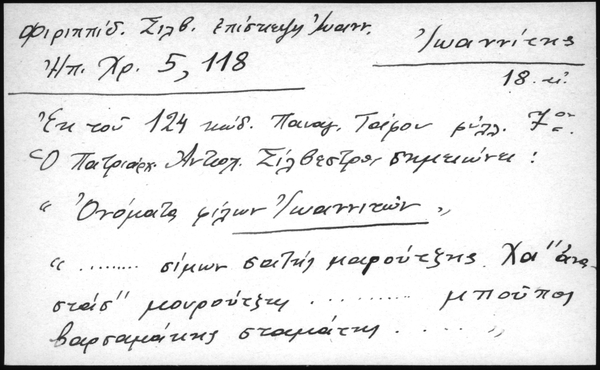 Φιριππίδ. Σιλβ. ἐπίσκεψη Ἰωανν.
Ἠπ. Χρ. 5, 118
Ἰωαννίτης
18. κ.
Ἐκ τοῦ 124 κώδ. Παναγ. Τάφου φύλλ. 7ον
Ὁ Πατριάρχ. Ἀντιοχ. Σίλβεστρος σημειώνει :
“ Ὀνόματα φίλων Ἰωαννιτῶν „
“ ......... σίμων σαΐτης μαρούτζης Χα" ἀνα-
στάσ" μουρούτζης .......... μπούπος
βαρσαμάκης σταμάτης . . . . „